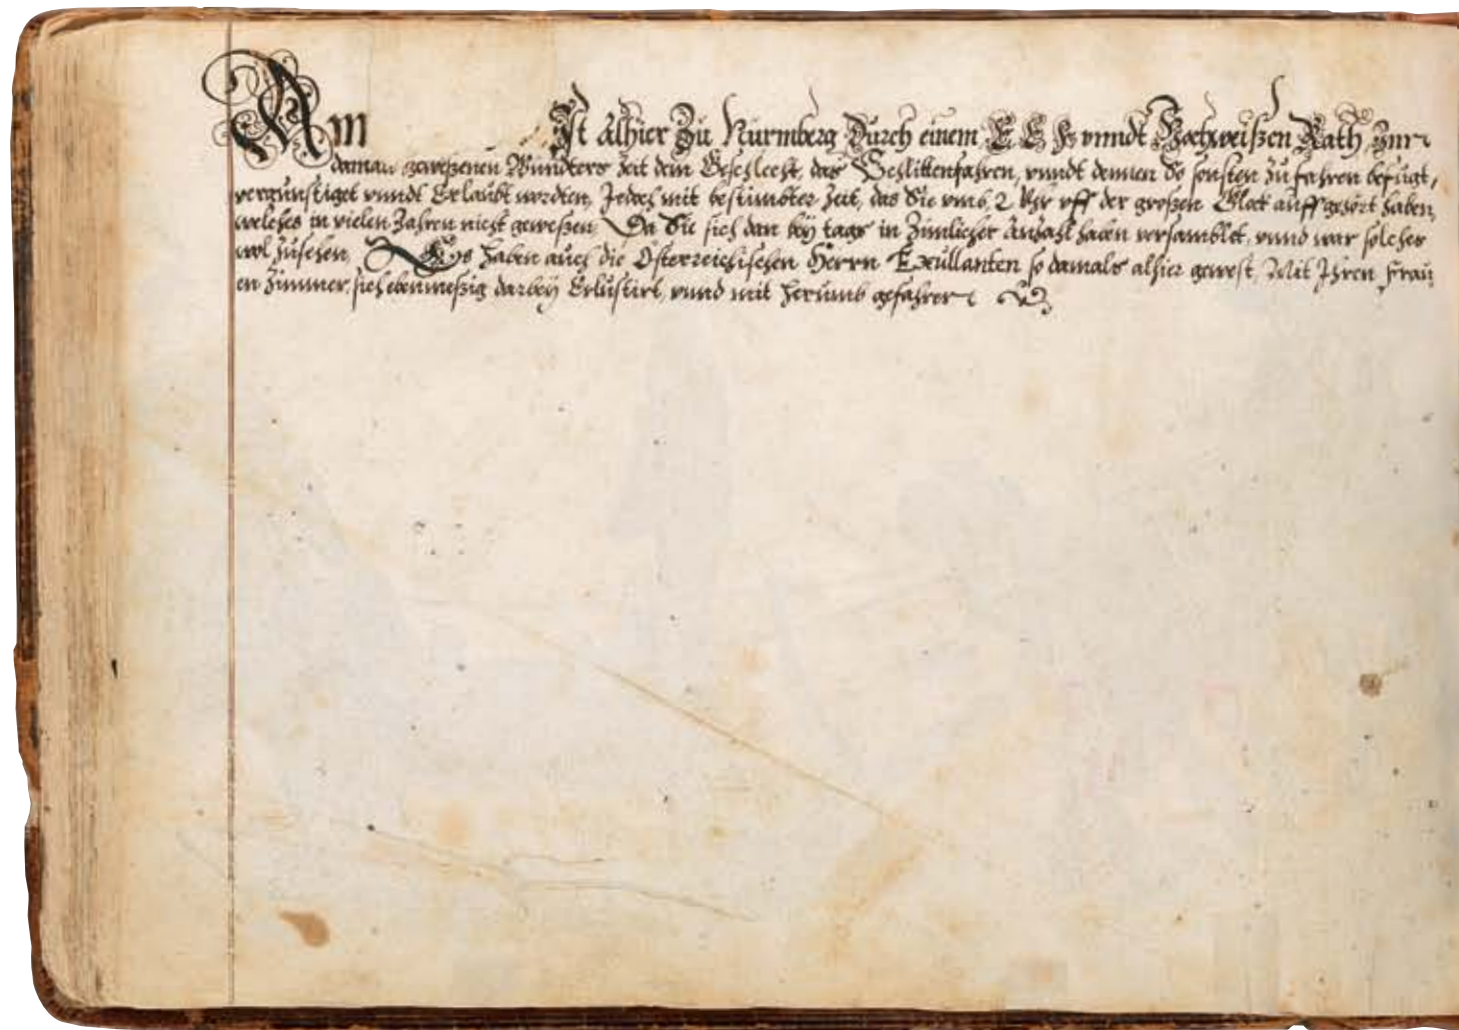 Am Ist Alhier Zu Nürmberg Durch einem E E F vnndt Hochweißen Rath Zur
damals geweßenen Wünders Zeit dem Geschlecht, das Schlittenfahren, vnndt denen So sonsten Zu fahren befugt,
vergünstiget vnndt Erlaubt worden, Jedoch mit bestimbter Zeit, das Sie vmb 2 Vhr vff der großen Glock auffgehört haben,
welches in vielen Jahren nicht geweßen. Da Sie sich dan bey tags in Zimlicher Anzahl haben versamblet, vnnd war solches
wol Zusehen, Es haben auch die Österreichischen Herrn Exullanten so damals alhier gewest, Mit Ihren Frau
en Zimmer, sich ebenmeßig darbey Erlüstirt, vnnd mit herumb gefahren